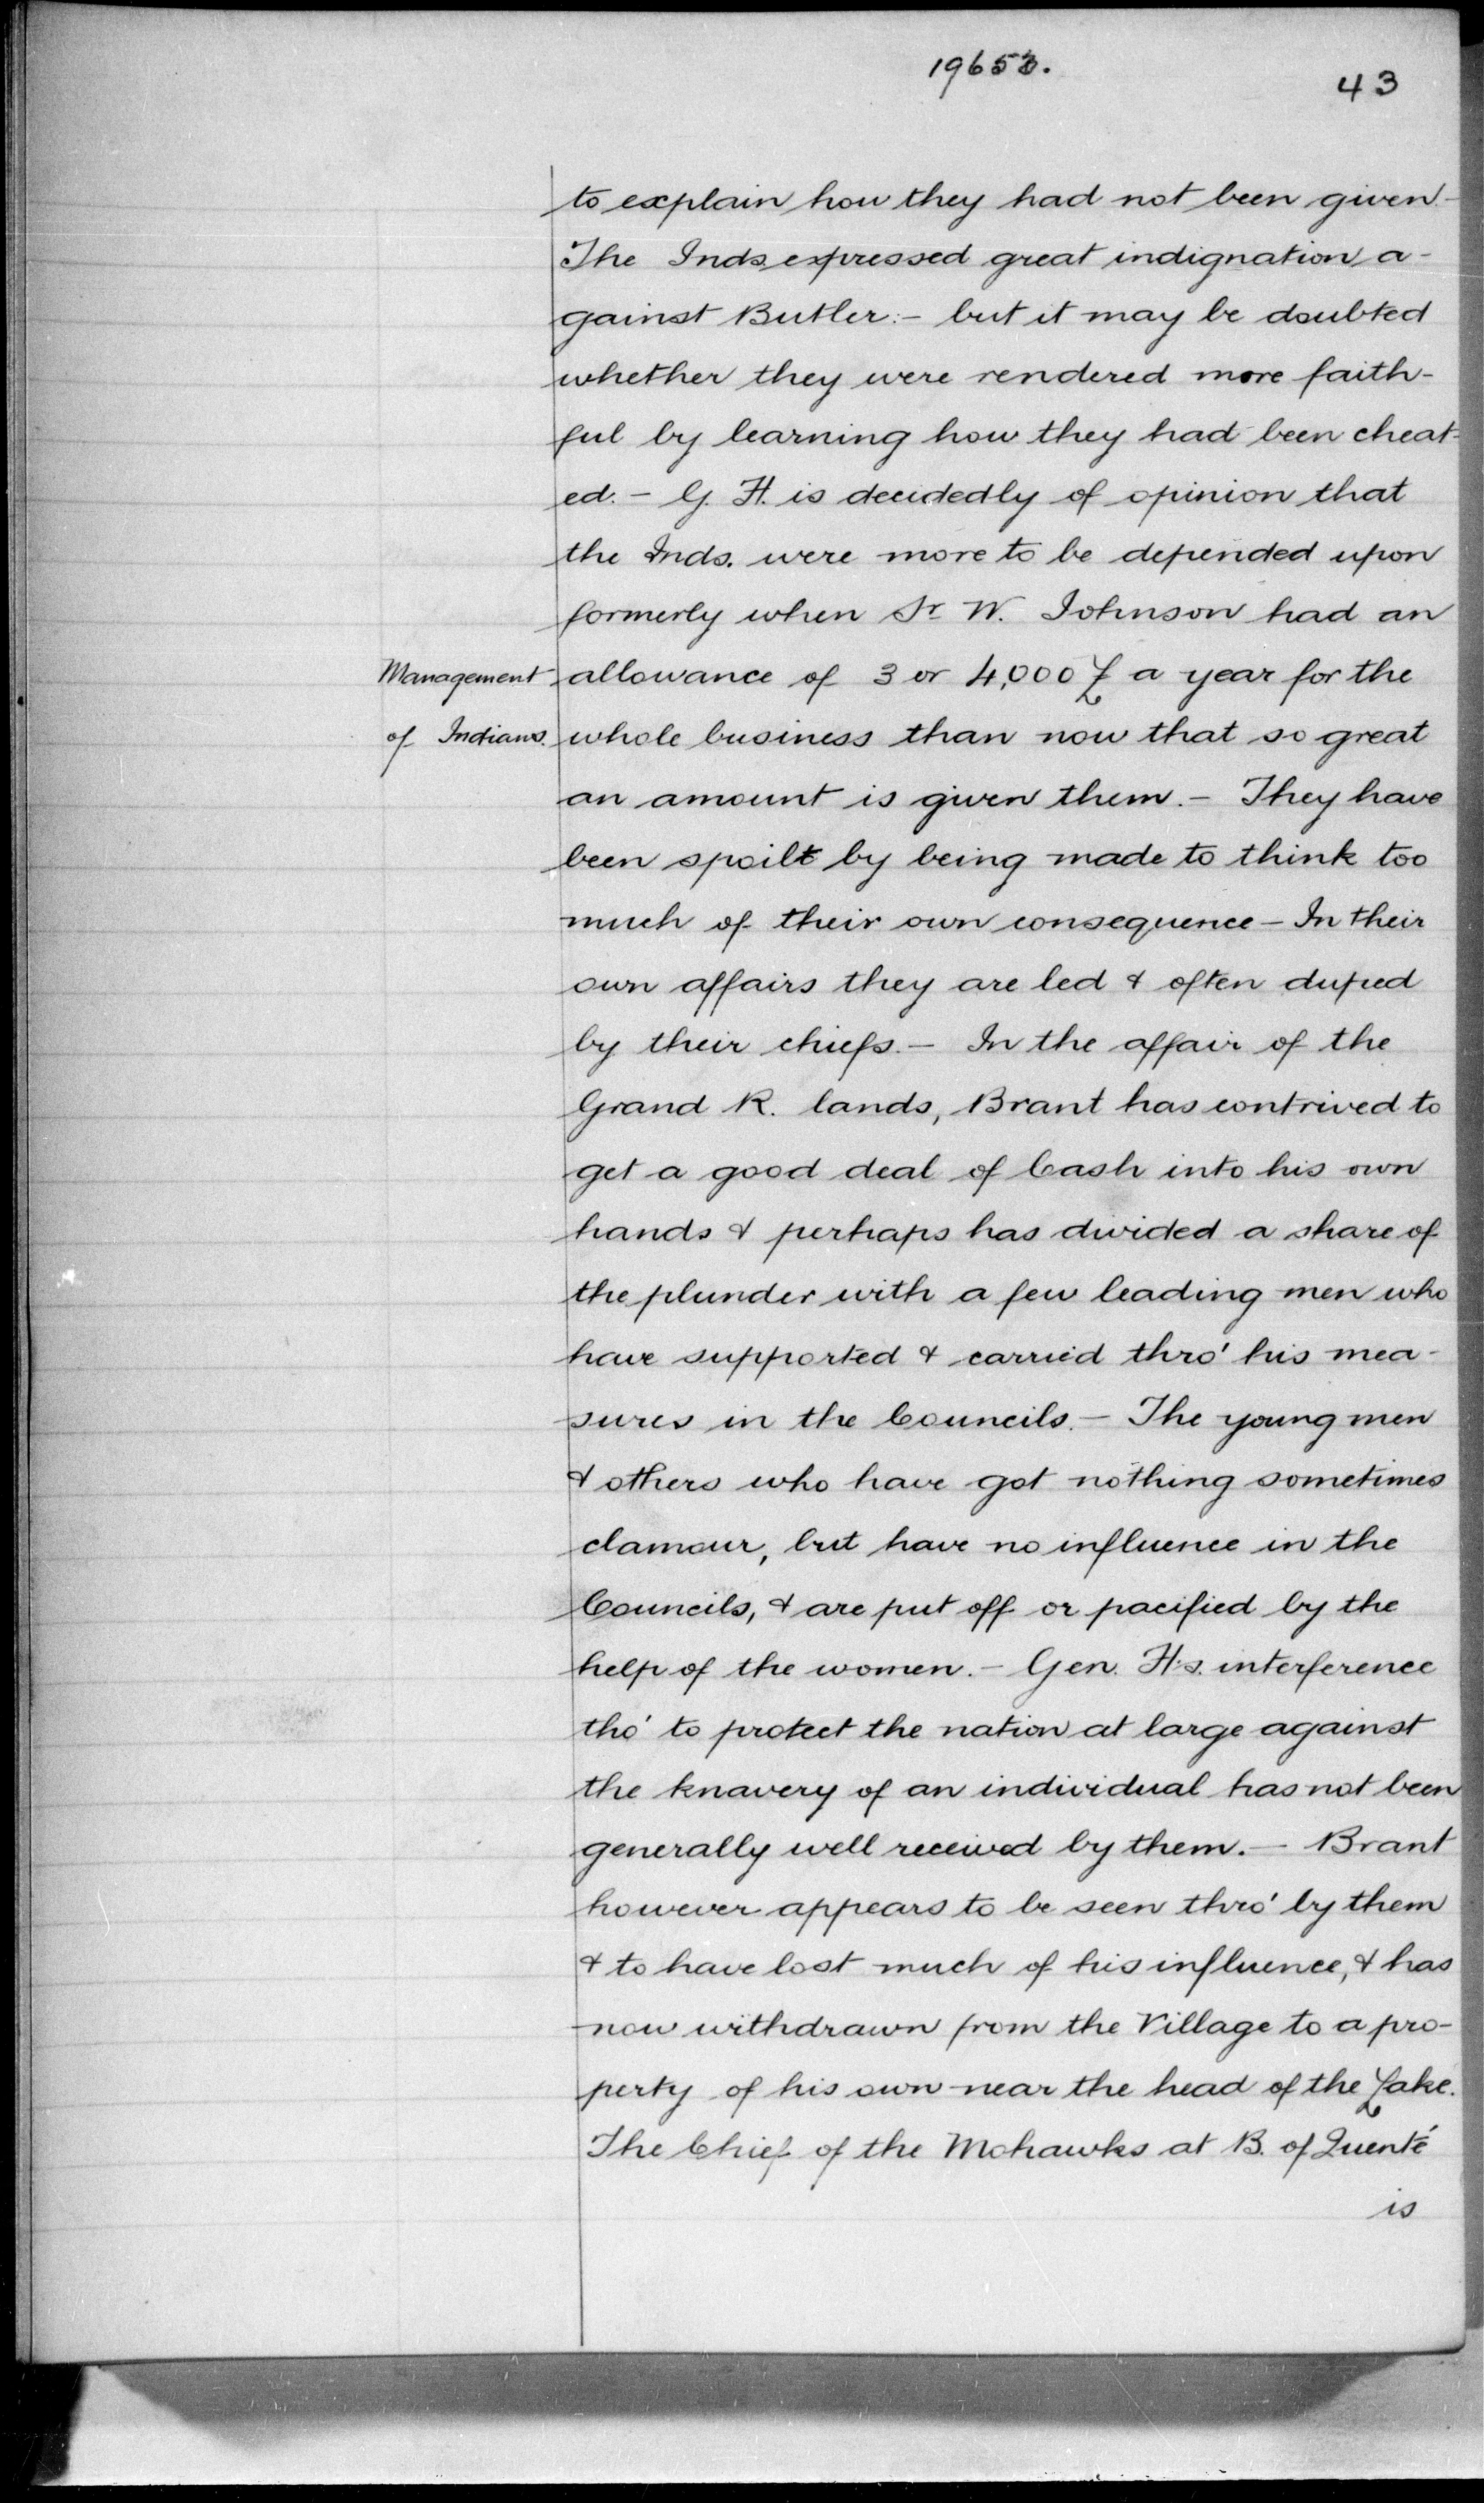 19653.
43
to explain how they had not been given -
The Inds expressed great indignation a-
gainst Butler :- but it may be doubted
whether they were rendered more faith-
ful by learning how they had been cheat-
ed. - G. H. is decidedly of opinion that
the Inds. were more to be depended upon
formerly when Sr W. Johnson had an
Management
of Indians.
allowance of 3 or 4,000 £ a year for the
whole business than now that so great
an amount is given them. - They have
been spoilt by being made to think too
much of their own consequence - In their
own affairs they are led & often duped
by their chiefs. - In the affair of the
Grand R. lands, Brant has contrived to
get a good deal of Cash into his own
hands & perhaps has divided a share of
the plunder with a few leading men who
have supported & carried thro' his mea-
sures in the Councils. - The young men
& others who have got nothing sometimes
clamour, but have no influence in the
Councils, & are put off or pacified by the
help of the women. - Gen. H's. interference
tho' to protect the nation at large against
the knavery of an individual has not been
generally well received by them. - Brant
however appears to be seen thro' by them
& to have lost much of his influence, & has
now withdrawn from the Village to a pro-
perty of his own near the head of the Lake.
The Chief of the Mohawks at B. of Quenté
is